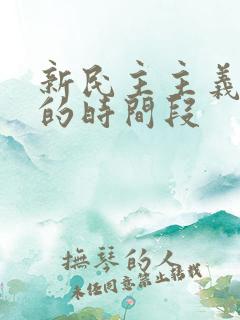 新民主主義
的時間段
撫琴的人
未经同意禁止转载